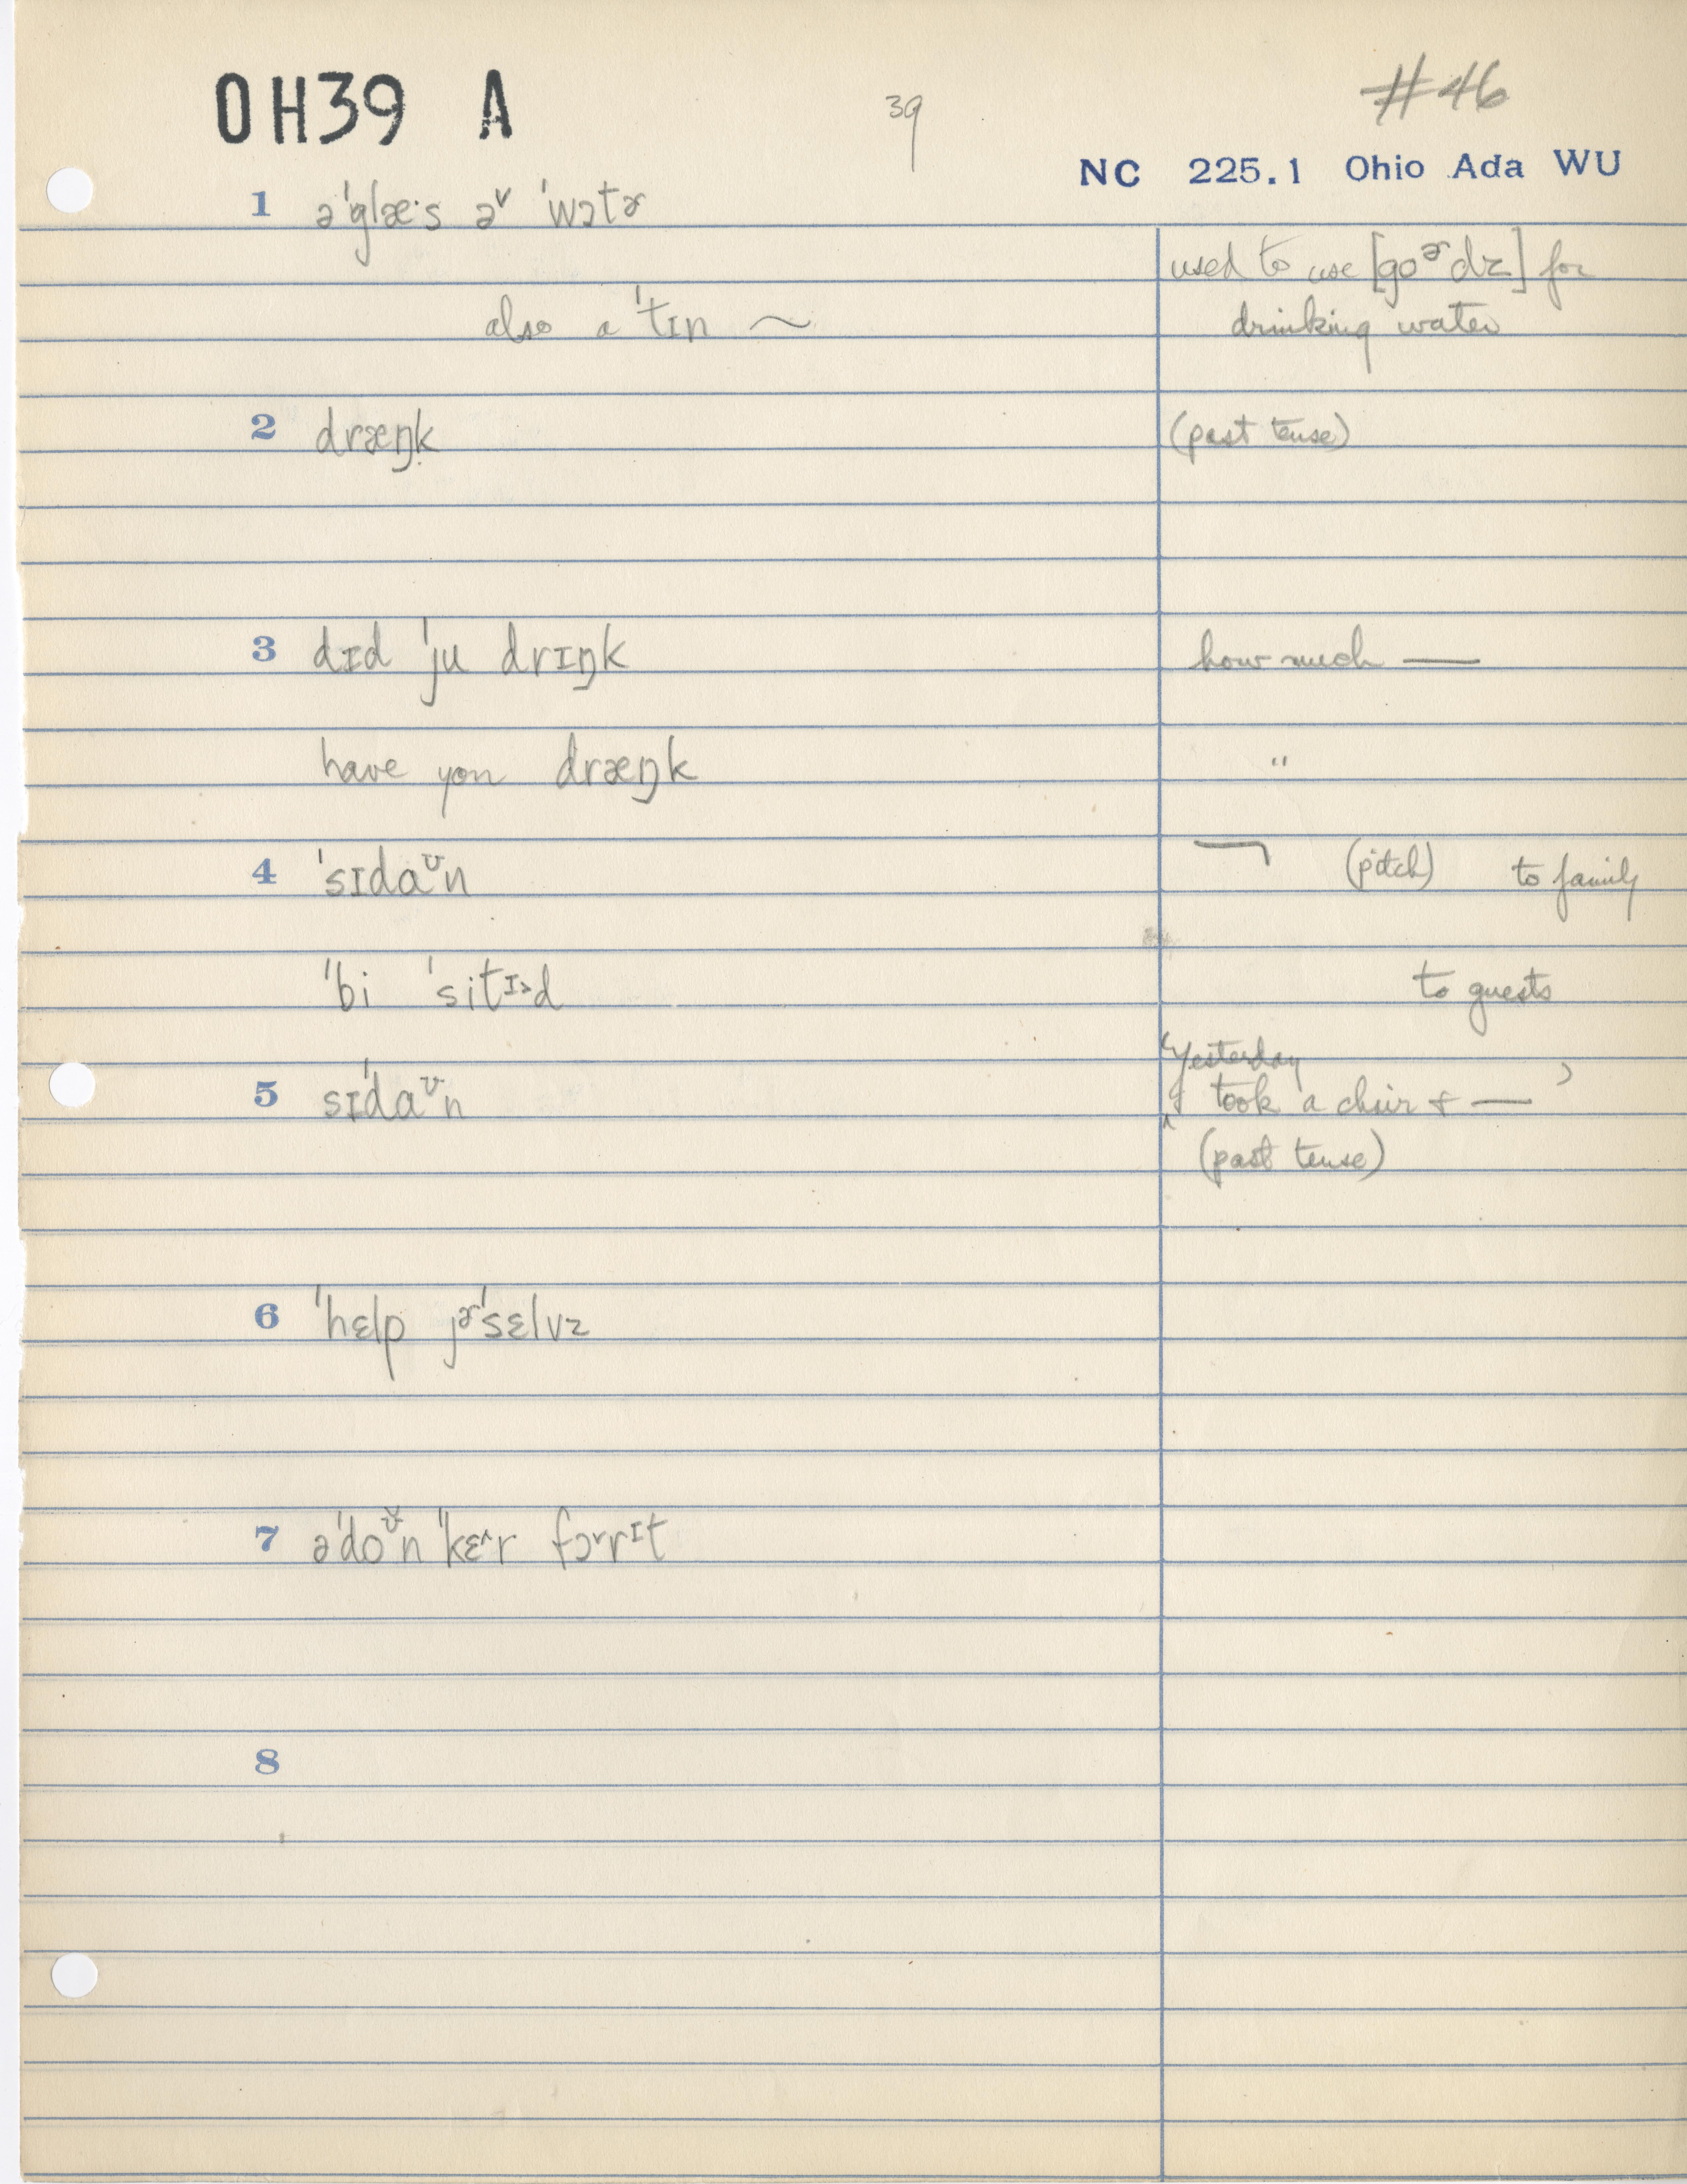 OH39 A
39
#46
NC 225.1 Ohio Ada WU
1 əˈglæ·s əᵛ ˈwɔtɚ
used to use [goɚdz] for
also a ˈtɪn ~
drinking water
2 dræŋk
(past tense)
3 dɪd ˈju drɪŋk
how much —
have you dræŋk
"
4 ˈsɪdaᶷn
(pitch) to family
ˈˈbi ˈsitᶦ˃d
to guests
5 sɪˈdaᶷn
‘Yesterday
I took a chair & — ’
(past tense)
6 ˈhɛlp jɚˈsɛlvz
7 əˈdoᶷ̆n ˈˈkɛ^r fɔ˅rᶦt
8